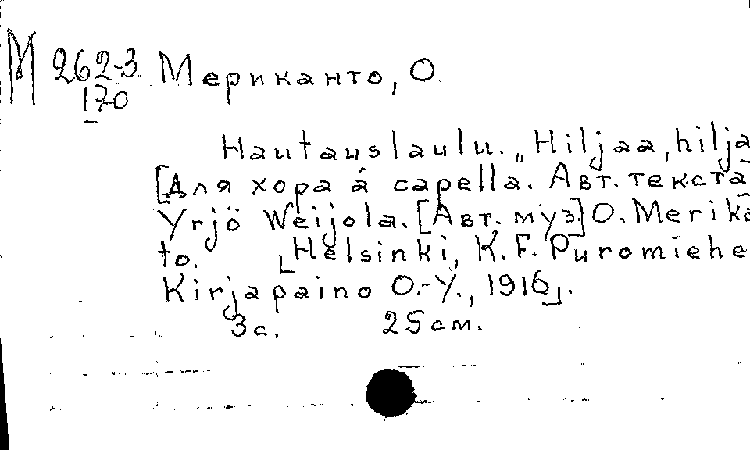 М 262-3 Мериканто, О.
170
Hautauslaulu. „Hiljaa, hilja
[Для хора á capella. Авт. текста
Yrjö Weijola. [Авт. муз.] O. Merika
to. Helsinki, K. F. Puromiehe
Kirjapaino O.-Y., 1916].
3 с. 25 см.